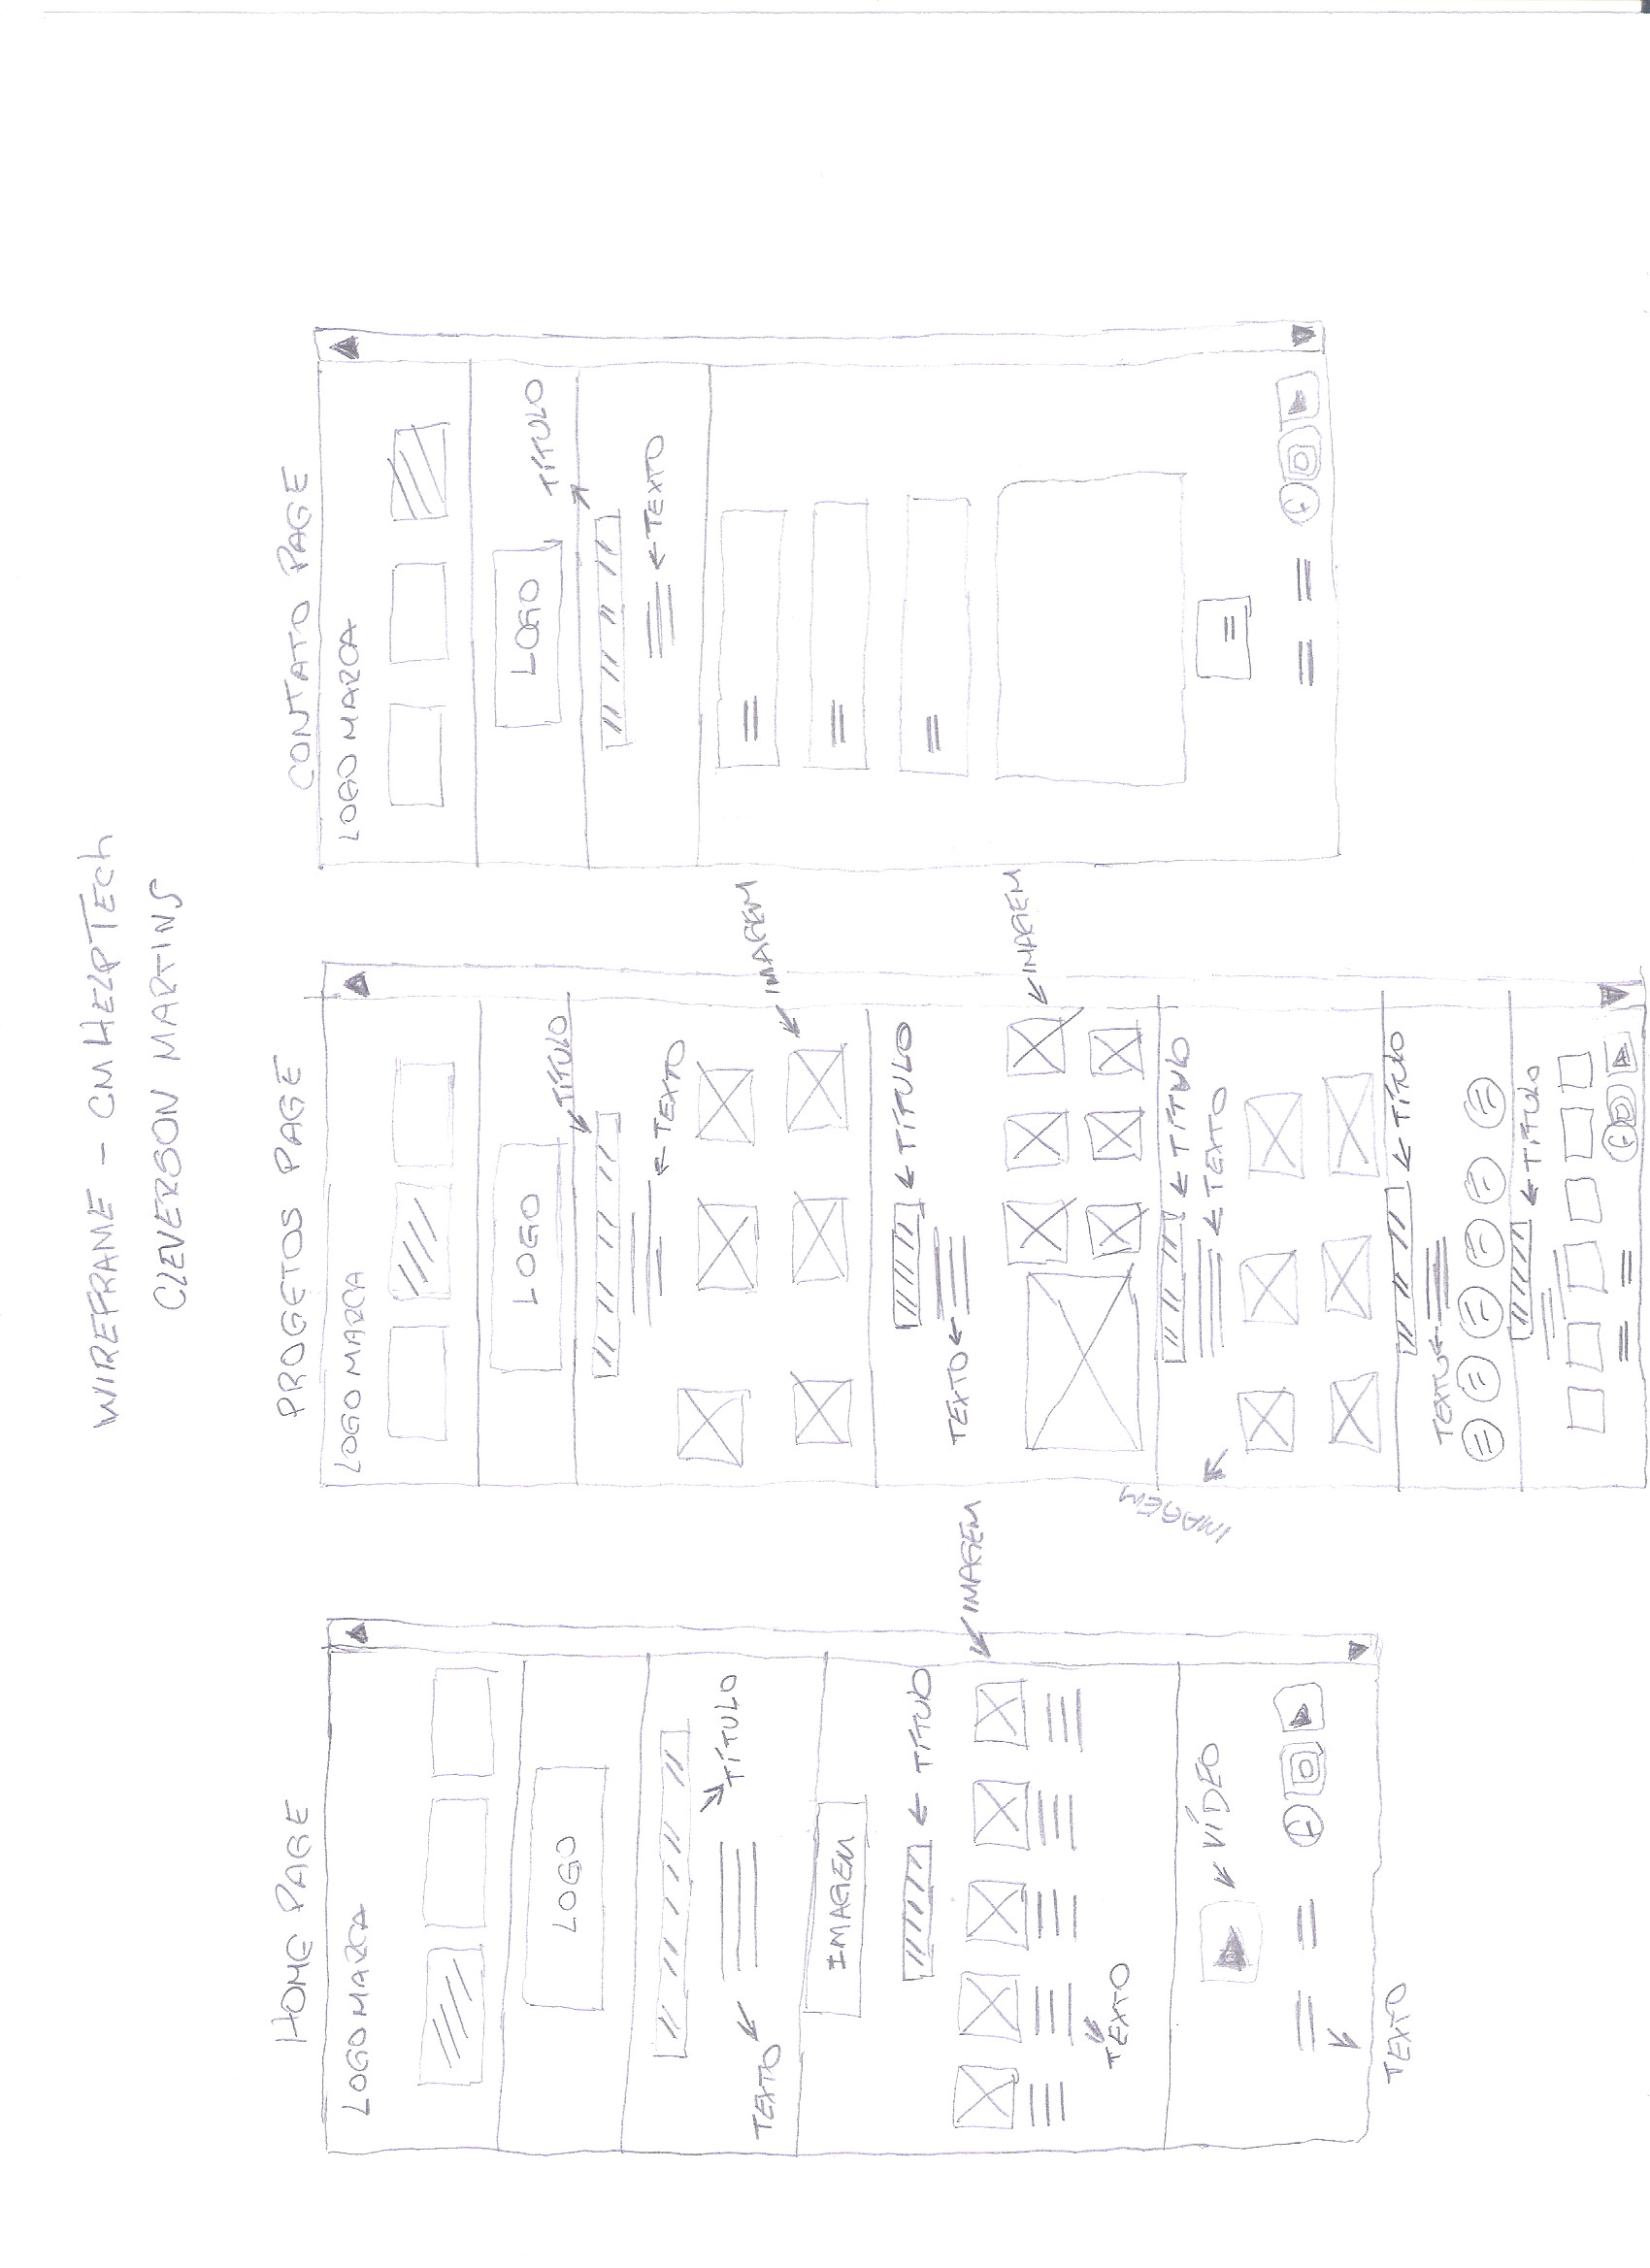 WIREFRAME - CM HELPTECh
CLEVERSON MARTINS
HOME PAGE
LOGO MARCA
LOGO
TÍTULO
TEXTO
IMAGEM
TÍTULO
IMAGEM
TEXTO
VÍDEO
TEXTO
PROGETOS PAGE
LOGO MARCA
LOGO
TÍTULO
TEXTO
IMAGEM
TÍTULO
TEXTO
IMAGEM
IMAGEM
TÍTULO
TEXTO
TÍTULO
TEXTO
TÍTULO
CONTATO PAGE
LOGO MARCA
LOGO
TÍTULO
TEXTO